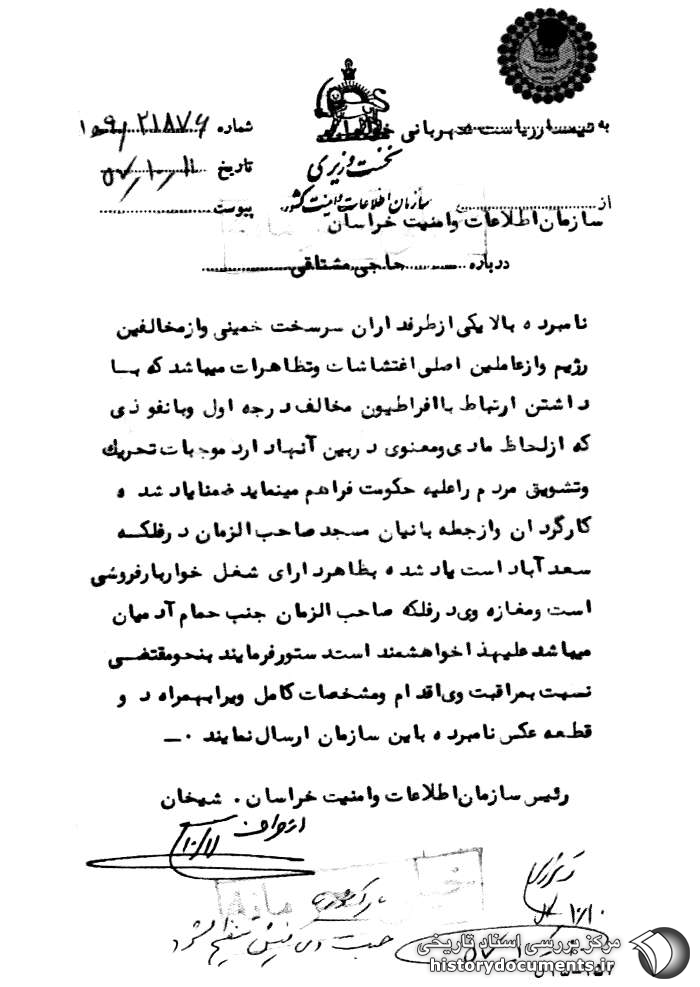 به تیمسار ریاست شهربانی خراسان
شماره ۲۱۸۷۶/۱ه۹
نخست وزیری
تاریخ ۱۱/۱۰/
سازمان اطلاعات و امنیت کشور
از
سازمان اطلاعات وامنیت خراسان
پیوست
درباره حاجی مشتاقی
نامبرده بالا یکی از طرفداران سرسخت خمینی واز مخالفین
رژیم واز عاملین اصلی اغتشاشات وتظاهرات میباشد که بــا
داشتن ارتباط باافراطیون مخالف درجه اول وبانفوذی
که ازلحاظ مادی ومعنوی دربین آنها دارد موجبات تحریك
وتشویق مردم راعلیه حکومت فراهم مینماید ضمنا یاد شده
کارگردان وازجمله بانیان مسجد صاحب الزمان درفلکــه
سعدآباد است یاد شده بظاهر دارای شغل خواربارفروشی
است ومغازه وی درفلکه صاحب الزمان جنب حمام آدمیان
میباشد علیهذا خواهشمند است دستور فرمایند بنحو مقتضــی
نسبت بمراقبت وی اقدام ومشخصات کامل ویرا بهمراه دو
قطعه عکس نامبرده باین سازمان ارسال نمایند ۰ــ
رئیس سازمان اطلاعات وامنیت خراسان . شیخان
۱۰/۱۱
۱۰/۱۰
خیلی محرمانه
مرکز بررسی اسناد تاریخی
historydocuments.ir